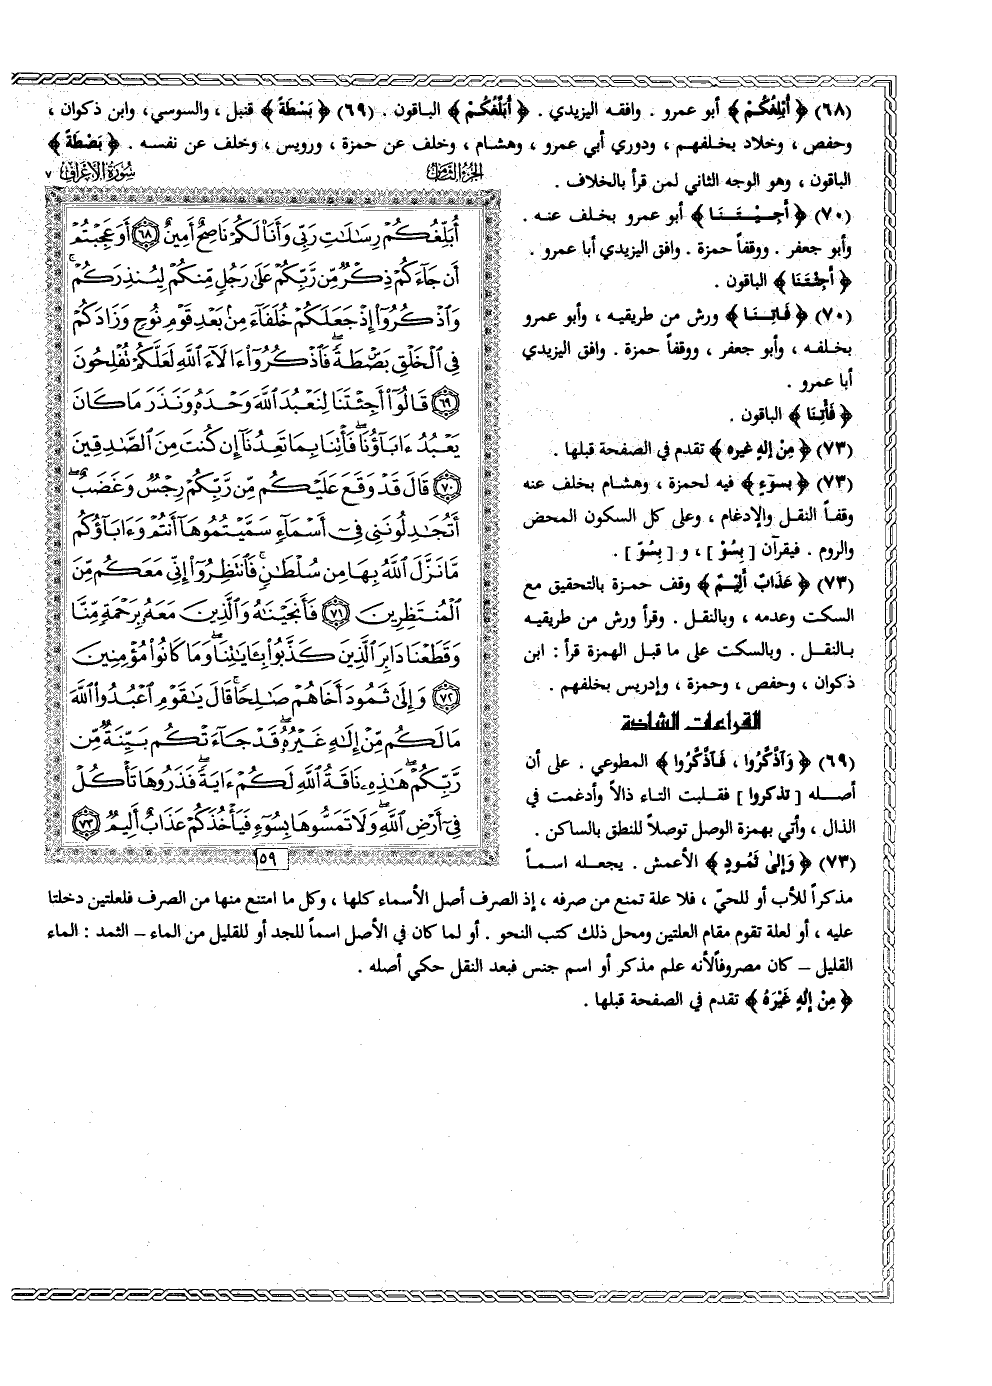 (٦٨) ﴿ أُبْلِغُكُمْ ﴾ أبو عمرو . وافقه اليزيدي . ﴿ أُبَلِّغُكُمْ ﴾ الباقون . (٦٩) ﴿ بَسْطَةً ﴾ قنبل ، والسوسي، وابن ذكوان ،
وحفص ، وخلاد بخلفهم ، ودوري أبي عمرو ، وهشام ، وخلف عن حمزة ، ورويس ، وخلف عن نفسه . ﴿ بَصْطَةً ﴾
الباقون ، وهو الوجه الثاني لمن قرأ بالخلاف .
(٧٠) ﴿ أَجِيْتَنَا ﴾ أبو عمرو بخلف عنه .
وأبو جعفر . ووقفاً حمزة . وافق اليزيدي أبا عمرو .
﴿ أَجِئْتَنَا ﴾ الباقون .
(٧٠) ﴿ فَاتِنَا ﴾ ورش من طريقيه ، وأبو عمرو
بخلفه ، وأبو جعفر ، ووقفاً حمزة . وافق اليزيدي
أبا عمرو .
﴿ فَأْتِنَا ﴾ الباقون .
(٧٣) ﴿ مِنْ إلهٍ غيره ﴾ تقدم في الصفحة قبلها .
(٧٣) ﴿ بسوءٍ ﴾ فيه لحمزة ، وهشام بخلف عنه
وقفاً النقل والإدغام ، وعلى كل السكون المحض
والروم . فيقرآن [ بِسُوْ ] ، و [ بِسُوّ ] .
(٧٣) ﴿ عَذَابٌ أَلِيْمٌ ﴾ وقف حمزة بالتحقيق مع
السكت وعدمه ، وبالنقل . وقرأ ورش من طريقيه
بالنقل . وبالسكت على ما قبل الهمزة قرأ : ابن
ذكوان ، وحفص ، وحمزة ، وإدريس بخلفهم .
القراءات الشاذة
(٦٩) ﴿ وَآذَّكَّرُوا ، فَآذَّكَّرُوا ﴾ المطوعي . على أن
أصله [ تذكروا ] فقلبت التاء ذالاً وأدغمت في
الذال ، وأتي بهمزة الوصل توصلاً للنطق بالساكن .
(٧٣) ﴿ وَإِلَىٰ ثَمُودٍ ﴾ الأعمش . يجعله اسماً
مذكراً للأب أو للحيّ ، فلا علة تمنع من صرفه ، إذ الصرف أصل الأسماء كلها ، وكل ما امتنع منها من الصرف فلعلتين دخلتا
عليه ، أو لعلة تقوم مقام العلتين ومحل ذلك كتب النحو . أو لما كان في الأصل اسماً للجد أو للقليل من الماء – الثمد : الماء
القليل – كان مصروفاً لأنه علم مذكر أو اسم جنس فبعد النقل حكي أصله .
﴿ مِنْ إِلَهٍ غَيْرَهُ ﴾ تقدم في الصفحة قبلها .
الجزء الثامن
سورة الأعراف ٧
أُبَلِّغُكُمْ رِسَٰلَٰتِ رَبِّي وَأَنَا۠ لَكُمْ نَاصِحٌ أَمِينٌ ٦٨ أَوَعَجِبْتُمْ
أَن جَآءَكُمْ ذِكْرٌ مِّن رَّبِّكُمْ عَلَىٰ رَجُلٍ مِّنكُمْ لِيُنذِرَكُمْ ۚ
وَٱذْكُرُوٓا۟ إِذْ جَعَلَكُمْ خُلَفَآءَ مِنۢ بَعْدِ قَوْمِ نُوحٍ وَزَادَكُمْ
فِي ٱلْخَلْقِ بَصْۜطَةً ۖ فَٱذْكُرُوٓا۟ ءَالَآءَ ٱللَّهِ لَعَلَّكُمْ تُفْلِحُونَ
٦٩ قَالُوٓا۟ أَجِئْتَنَا لِنَعْبُدَ ٱللَّهَ وَحْدَهُۥ وَنَذَرَ مَا كَانَ
يَعْبُدُ ءَابَآؤُنَا ۖ فَأْتِنَا بِمَا تَعِدُنَآ إِن كُنتَ مِنَ ٱلصَّٰدِقِينَ
٧٠ قَالَ قَدْ وَقَعَ عَلَيْكُم مِّن رَّبِّكُمْ رِجْسٌ وَغَضَبٌ ۖ
أَتُجَٰدِلُونَنِي فِيٓ أَسْمَآءٍ سَمَّيْتُمُوهَآ أَنتُمْ وَءَابَآؤُكُم
مَّا نَزَّلَ ٱللَّهُ بِهَا مِن سُلْطَٰنٍ ۚ فَٱنتَظِرُوٓا۟ إِنِّي مَعَكُم مِّنَ
ٱلْمُنتَظِرِينَ ٧١ فَأَنجَيْنَٰهُ وَٱلَّذِينَ مَعَهُۥ بِرَحْمَةٍ مِّنَّا
وَقَطَعْنَا دَابِرَ ٱلَّذِينَ كَذَّبُوا۟ بِـَٔايَٰتِنَا ۖ وَمَا كَانُوا۟ مُؤْمِنِينَ
٧٢ وَإِلَىٰ ثَمُودَ أَخَاهُمْ صَٰلِحًا ۗ قَالَ يَٰقَوْمِ ٱعْبُدُوا۟ ٱللَّهَ
مَا لَكُم مِّنْ إِلَٰهٍ غَيْرُهُۥ ۖ قَدْ جَآءَتْكُم بَيِّنَةٌ مِّن
رَّبِّكُمْ ۖ هَٰذِهِۦ نَاقَةُ ٱللَّهِ لَكُمْ ءَايَةً ۖ فَذَرُوهَا تَأْكُلْ
فِيٓ أَرْضِ ٱللَّهِ ۖ وَلَا تَمَسُّوهَا بِسُوٓءٍ فَيَأْخُذَكُمْ عَذَابٌ أَلِيمٌ ٧٣
١٥٩